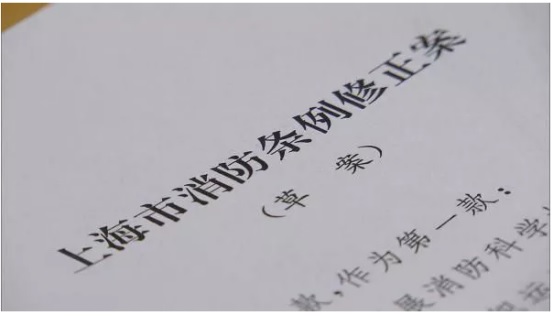 上海市消防条例修正案
（草 案）
款，作为第一款：
展消防科学